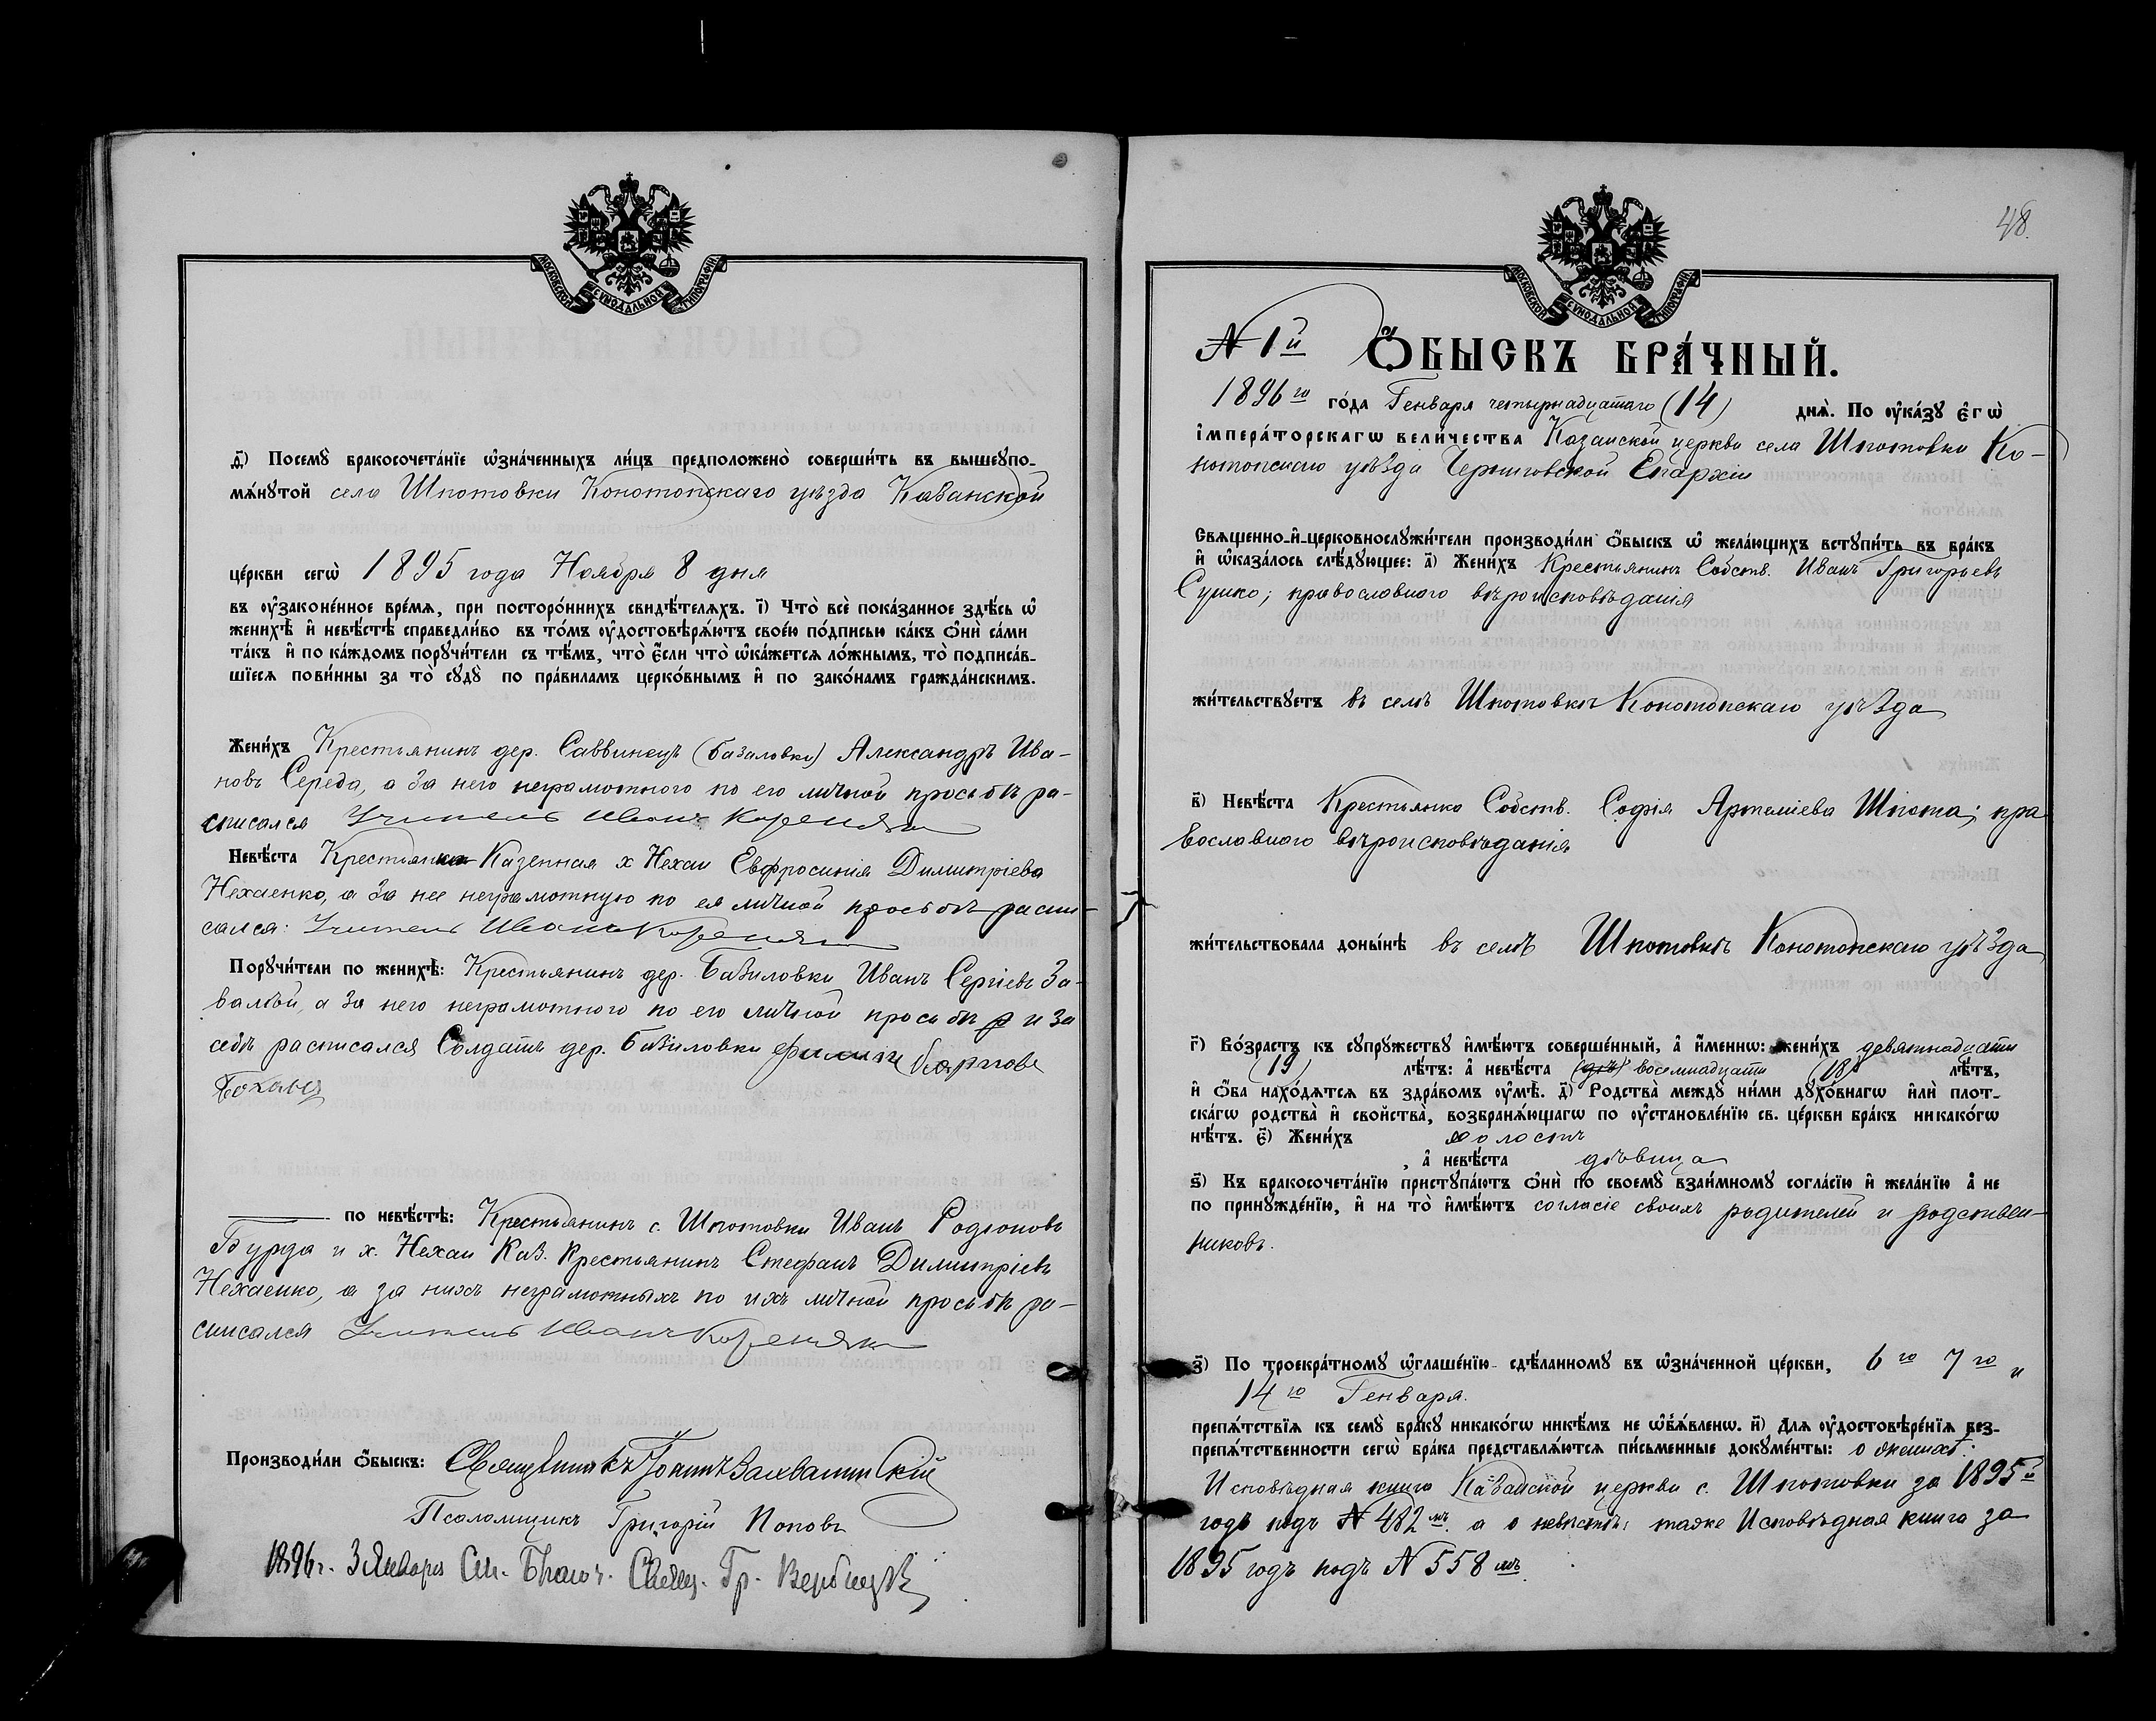 МОСКОВСКОЙ СУНОДАЛЬНОЙ ТИПОГРАФІИ
д҃) Посемꙋ̀ бракосочета́нїе ѡ҆зна́ченныхъ ли́цъ предположено̀ соверши́ть въ вышеупо-
мѧ́нꙋтой села Шпотовки Конотопскаго уѣзда Казанской
це́ркви сегѡ̀ 1895 года Ноября 8 дня
въ ᲂу҆зако́нѐнное вре́мѧ, при посторо́ннихъ свидѣ́телѧхъ. і҃) Что̀ всѐ пока́занное здѣ́сь ѡ҆
женихѣ̀ и҆ невѣ́стѣ справедли́во въ то́мъ ᲂу҆достовѣрѧ́ютъ свое́ю по́дписью ка́къ ѻ҆нѝ са́ми
та́къ и҆ по ка́ждомъ порꙋчи́тели съ тѣ́мъ, что̀ є҆́сли что̀ ѡ҆ка́жется ло́жнымъ, то̀ подписа́в-
шїеся пови́нны за то̀ сꙋдꙋ̀ по пра́виламъ церко́внымъ и҆ по зако́намъ гражда́нскимъ.
Жени́хъ Крестьянинъ дер. Саввинецъ (Базиловки) Александръ Ива-
новъ Середа, а за него неграмотного по его личной просьбѣ ра-
списался Учитель Иванъ Кореняк
Невѣ́ста Крестьянка Казенная х Нехаи Евфросинія Димитріева
Нехаенко, а за нее неграмотную по ея личной просьбѣ распи-
сался: Учитель Иванъ Кореняк
Порꙋчи́тели по женихѣ̀: Крестьянинъ дер. Базиловки Иванъ Сергіевъ За-
валѣй, а за него неграмотного по его личной просьбѣ и за
себѣ расписался Солдатъ дер. Базиловки Филипп
по невѣ́стѣ: Крестьянинъ с. Шпотовки Иванъ Родіоновъ
Бурда и х. Нехаи Каз. Крестьянинъ Стефанъ Димитріевъ
Нехаенко, а за нихъ неграмотныхъ по ихъ личной просьбѣ ра-
списался Учитель Иванъ Кореняк
Производи́ли ѻ҆́быскъ: Священникъ Іоаннъ
Псаломщикъ Григорій Поповъ
1896 г. 3 Января Св. Благоч. Свящ. Гр. Вербицкій
48.
МОСКОВСКОЙ СУНОДАЛЬНОЙ ТИПОГРАФІИ
N 1й Ѻ҆БЫСКЪ БРА́ЧНЫЙ.
1896го го́да Генваря четырнадцатаго (14) днѧ̀. По ᲂу҆ка́зꙋ Є҆гѡ̀
і҆мпера́торскагѡ вели́чества Казанской церкви села Шпотовки Ко-
нотопскаго уѣзда Черниговской Епархіи
Свѧщенно-и҆-церковнослꙋжи́тели производи́ли ѻ҆́быскъ ѡ҆ жела́ющихъ вступи́ть въ бра́къ
и҆ ѡ҆каза́лось слѣ́дꙋющее: а҃) Жени́хъ Крестьянинъ Собств. Иванъ Григорьевъ
Сушко; православного вѣроисповѣданія
жи́тельствꙋетъ въ селѣ Шпотовкѣ Конотопскаго уѣзда
в҃) Невѣ́ста Крестьянка Собств. Софія Артеміева Шпота; пра
вославного вѣроисповѣданія
жи́тельствовала доны́нѣ въ селѣ Шпотовкѣ Конотопскаго уѣзда
г҃) Во́зрастъ къ сꙋпрꙋ́жествꙋ и҆мѣ́ютъ совершѐнный, а҆ и҆́меннѡ: жени́хъ девятнадцати
(19) лѣ́тъ: а҆ невѣ́ста восемнадцати (18) лѣ́тъ,
и҆ ѻ҆́ба нахо́дѧтсѧ въ здра́вомъ ᲂу҆мѣ̀. д҃) Родства̀ междꙋ̀ ни́ми дꙋхо́внагѡ и҆лѝ плот-
ска́гѡ родства̀ и҆ сво́йства̀, возбранѧ́ющагѡ по ᲂу҆становле́нїю св. це́ркви бра́къ никако́гѡ
нѣ́тъ. є҃) Жени́хъ холостъ
, а҆ невѣ́ста дѣвица
ѕ҃) Къ бракосочета́нїю пристꙋпа́ютъ ѻ҆нѝ по своемꙋ̀ взаи́мномꙋ согла́сїю и҆ жела́нїю а҆ не
по принꙋжде́нїю, и҆ на то̀ и҆мѣ́ютъ согласіе своихъ родителей и родствен-
никовъ.
з҃) По троекра́тномꙋ ѡ҆глаше́нїю сдѣ́ланномꙋ въ ѡ҆зна́ченной це́ркви, 6го 7го и
14го Генваря.
препѧ́тствїѧ къ семꙋ̀ бра́кꙋ никако́гѡ никѣ́мъ не ѡ҆б̾ѧ́вленѡ. и҃) Длѧ ᲂу҆достовѣре́нїѧ без-
препѧ́тственности сегѡ̀ бра́ка представлѧ́ются пи́сьменные докꙋме́нты: о женихѣ:
Исповѣдная книга Казанской церкви с. Шпотовки за 1895й
годъ подъ N 482мъ. а о невѣстѣ: также Исповѣдная книга за
1895 годъ подъ N 558мъ.